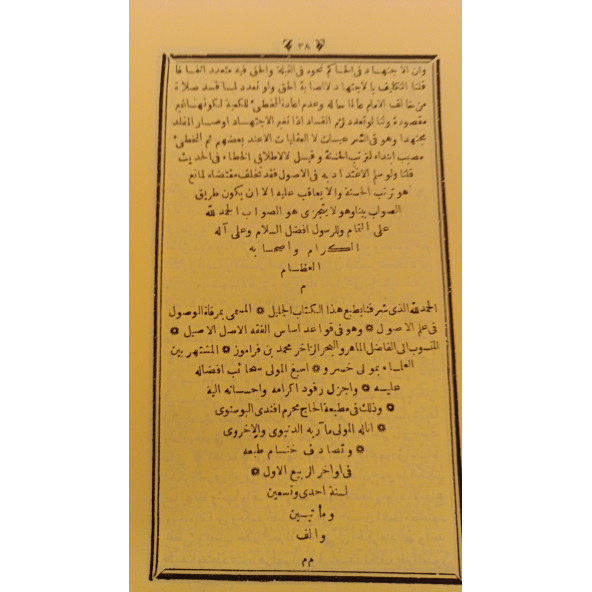 ٣٨
وان الاجتهاد فى الحاكم كهو فى القبلة والحق فيه متعدد اتفاقا
قلنا التكليف بالاجتهاد لاصابة الحق ولو تعدد لما فسد صلاة
من خالف الامام عالما حاله وعدم اعادة المخطئ للكعبة لكونها غير
مقصودة ولنا لو تعدد لزم الفساد اذا تغير الاجتهاد وصار المقلد
مجتهدا وهو فى الشرعيات لا العقليات الاعند بعضهم ثم المخطئ
مصيب ابتداء لترتب الحسنة وقيل لا لاطلاق الخطاء فى الحديث
قلنا ولو سلم الاعتداد به فى الاصول فقد تخلف مقتضاه لمانع
هو ترتب الحسنة ولا يعاقب عليه الا ان يكون طريق
الصواب بينا وهو لا يتجزى هو الصواب الحمد لله
على التمام وللرسول افضل السلام وعلى آله
الكرام واصحابه
العظام
م
الحمد لله الذى شرفنا بطبع هذا الكتاب الجليل ۞ المسمى بمرقاة الوصول
فى علم الاصول ۞ وهو فى قواعد اساس الفقه الاصل الاصيل ۞
المنسوب الى الفاضل الماهر والبحر الزاخر محمد بن فراموز ۞ المشتهر بين
العلماء بمولى خسرو ۞ اسبغ المولى سحائب افضاله
عليه ۞ واجزل رفود اكرامه واحسانه اليه
۞ وذلك فى مطبعة الحاج محرم افندى البوسنوى
۞ اناله المولى مآربه الدنيوى والاخروى
۞ وتصادف ختام طبعه
فى اواخر الربيع الاول ۞
لسنة احدى وتسعين
ومأتيين
والف
م م